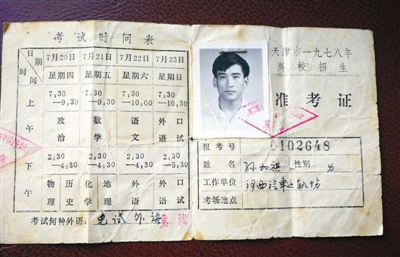 考试时间表
日期 7月20日 7月21日 7月22日 7月23日
时间 星期四 星期五 星期六 星期日
上午 7,30—9,30 7,30—9,30 7,30—10,00 7,30—10,30
政治 数学 语文 外语 口试
下午 2,30—4,30 2,30—4,30 2,30—4,30 2,30—5,30
物理 历史 化学 地理 外语 口试
考试何种外语: 免试外语
天津市一九七八年
高校招生
准考证
报考号 0102648
姓名 孙加祺 性别 男
工作单位 河西汽车运输场
考场地点